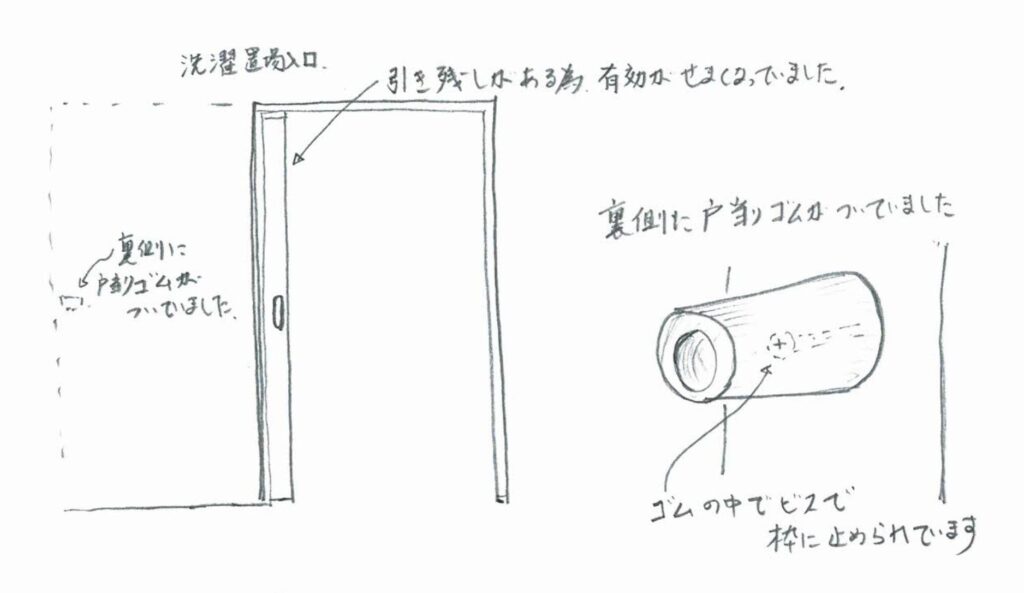 洗濯置場入口.
引き残しがある為 有効がせまくなっていました.
裏側に
戸当りゴムが
ついていました.
裏側に戸当りゴムがついていました
ゴムの中でビスで
枠に止められています